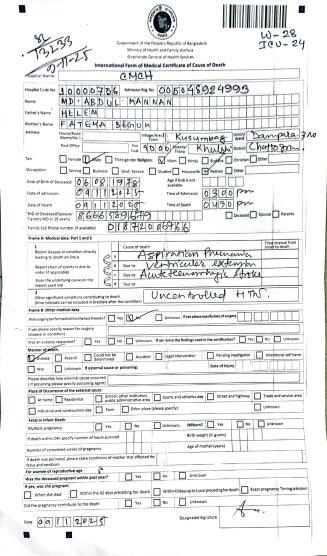 W-28
ICU-24
Government of the People's Republic of Bangladesh
Ministry of Health and Family Welfare
Directorate General of Health Services
International Form of Medical Certificate of Cause of Death
Hospital Name CMCH
Hospital Code No 10000756 Admission Reg. No 005045924993
Name MD. ABDUL MANNAN
Father's Name HELEM
Mother's Name FATEMA BEGUM
Address House/Road Village/Area/Town Kusumbag Ward
Post Office Thana Khulshi District
Sex: Female Male Third gender Religion: Islam Hindu Buddha Christian Other
Occupation: Service Business Govt. Service Student Housewife Retired Other
Date of Birth of Deceased 06081928 Age if DoB is not available
Date of Admission 09112025 Time of Admission
Date of Death 09112025 Time of Death
NID of Deceased/Spouse/Parents Deceased Spouse Parents
Family Cell Phone Number (if available)
Frame A: Medical data: Part 1 and 2
Cause of death Time interval from onset to death
1
Report disease or condition directly leading to death on line a Aspiration Pneumonia
Report chain of events in due to order (if applicable) Due to: Ventricular extension
State the underlying cause on the lowest used line Due to: Acute Hemorrhagic Stroke
2
Other significant conditions contributing to death (time intervals can be included in brackets after the condition) Uncontrolled HTN.
Frame B: Other medical data
Was surgery performed within the last 4 weeks? Yes No Unknown If yes please specify date of surgery
If yes please specify reason for surgery (disease or condition)
Was an autopsy requested? Yes No Unknown If yes were the findings used in the certification? Yes No Unknown
Manner of death:
Disease Assault Could not be determined Accident Legal intervention Pending investigation Intentional self harm
War Unknown If external cause or poisoning: Date of injury
Please describe how external cause occurred (if poisoning please specify poisoning agent)
Place of Occurrence of the external cause:
At home Residential School, other institution, public administrative area Sports and athletics area Street and highway Trade and service area
Industrial and construction area Farm Other place (please specify): Unknown
Fetal or infant Death
Multiple pregnancy: Yes No Unknown Stillborn? Yes No Unknown
If death within 24h specify number of hours survived Birth weight (in grams)
Number of completed weeks of pregnancy Age of mother (years)
If death was perinatal, please state conditions of mother that affected the fetus and newborn
For women of reproductive age
Was the deceased pregnant within past year? Yes No Unknown
If yes, was she pregnant:
When she died Within the 42 days preceding her death Within 43 days up to 1 year preceding her death Exact pregnancy timing unknown
Did the pregnancy contribute to the death? Yes No Unknown
Date 09112025 Designated Signature